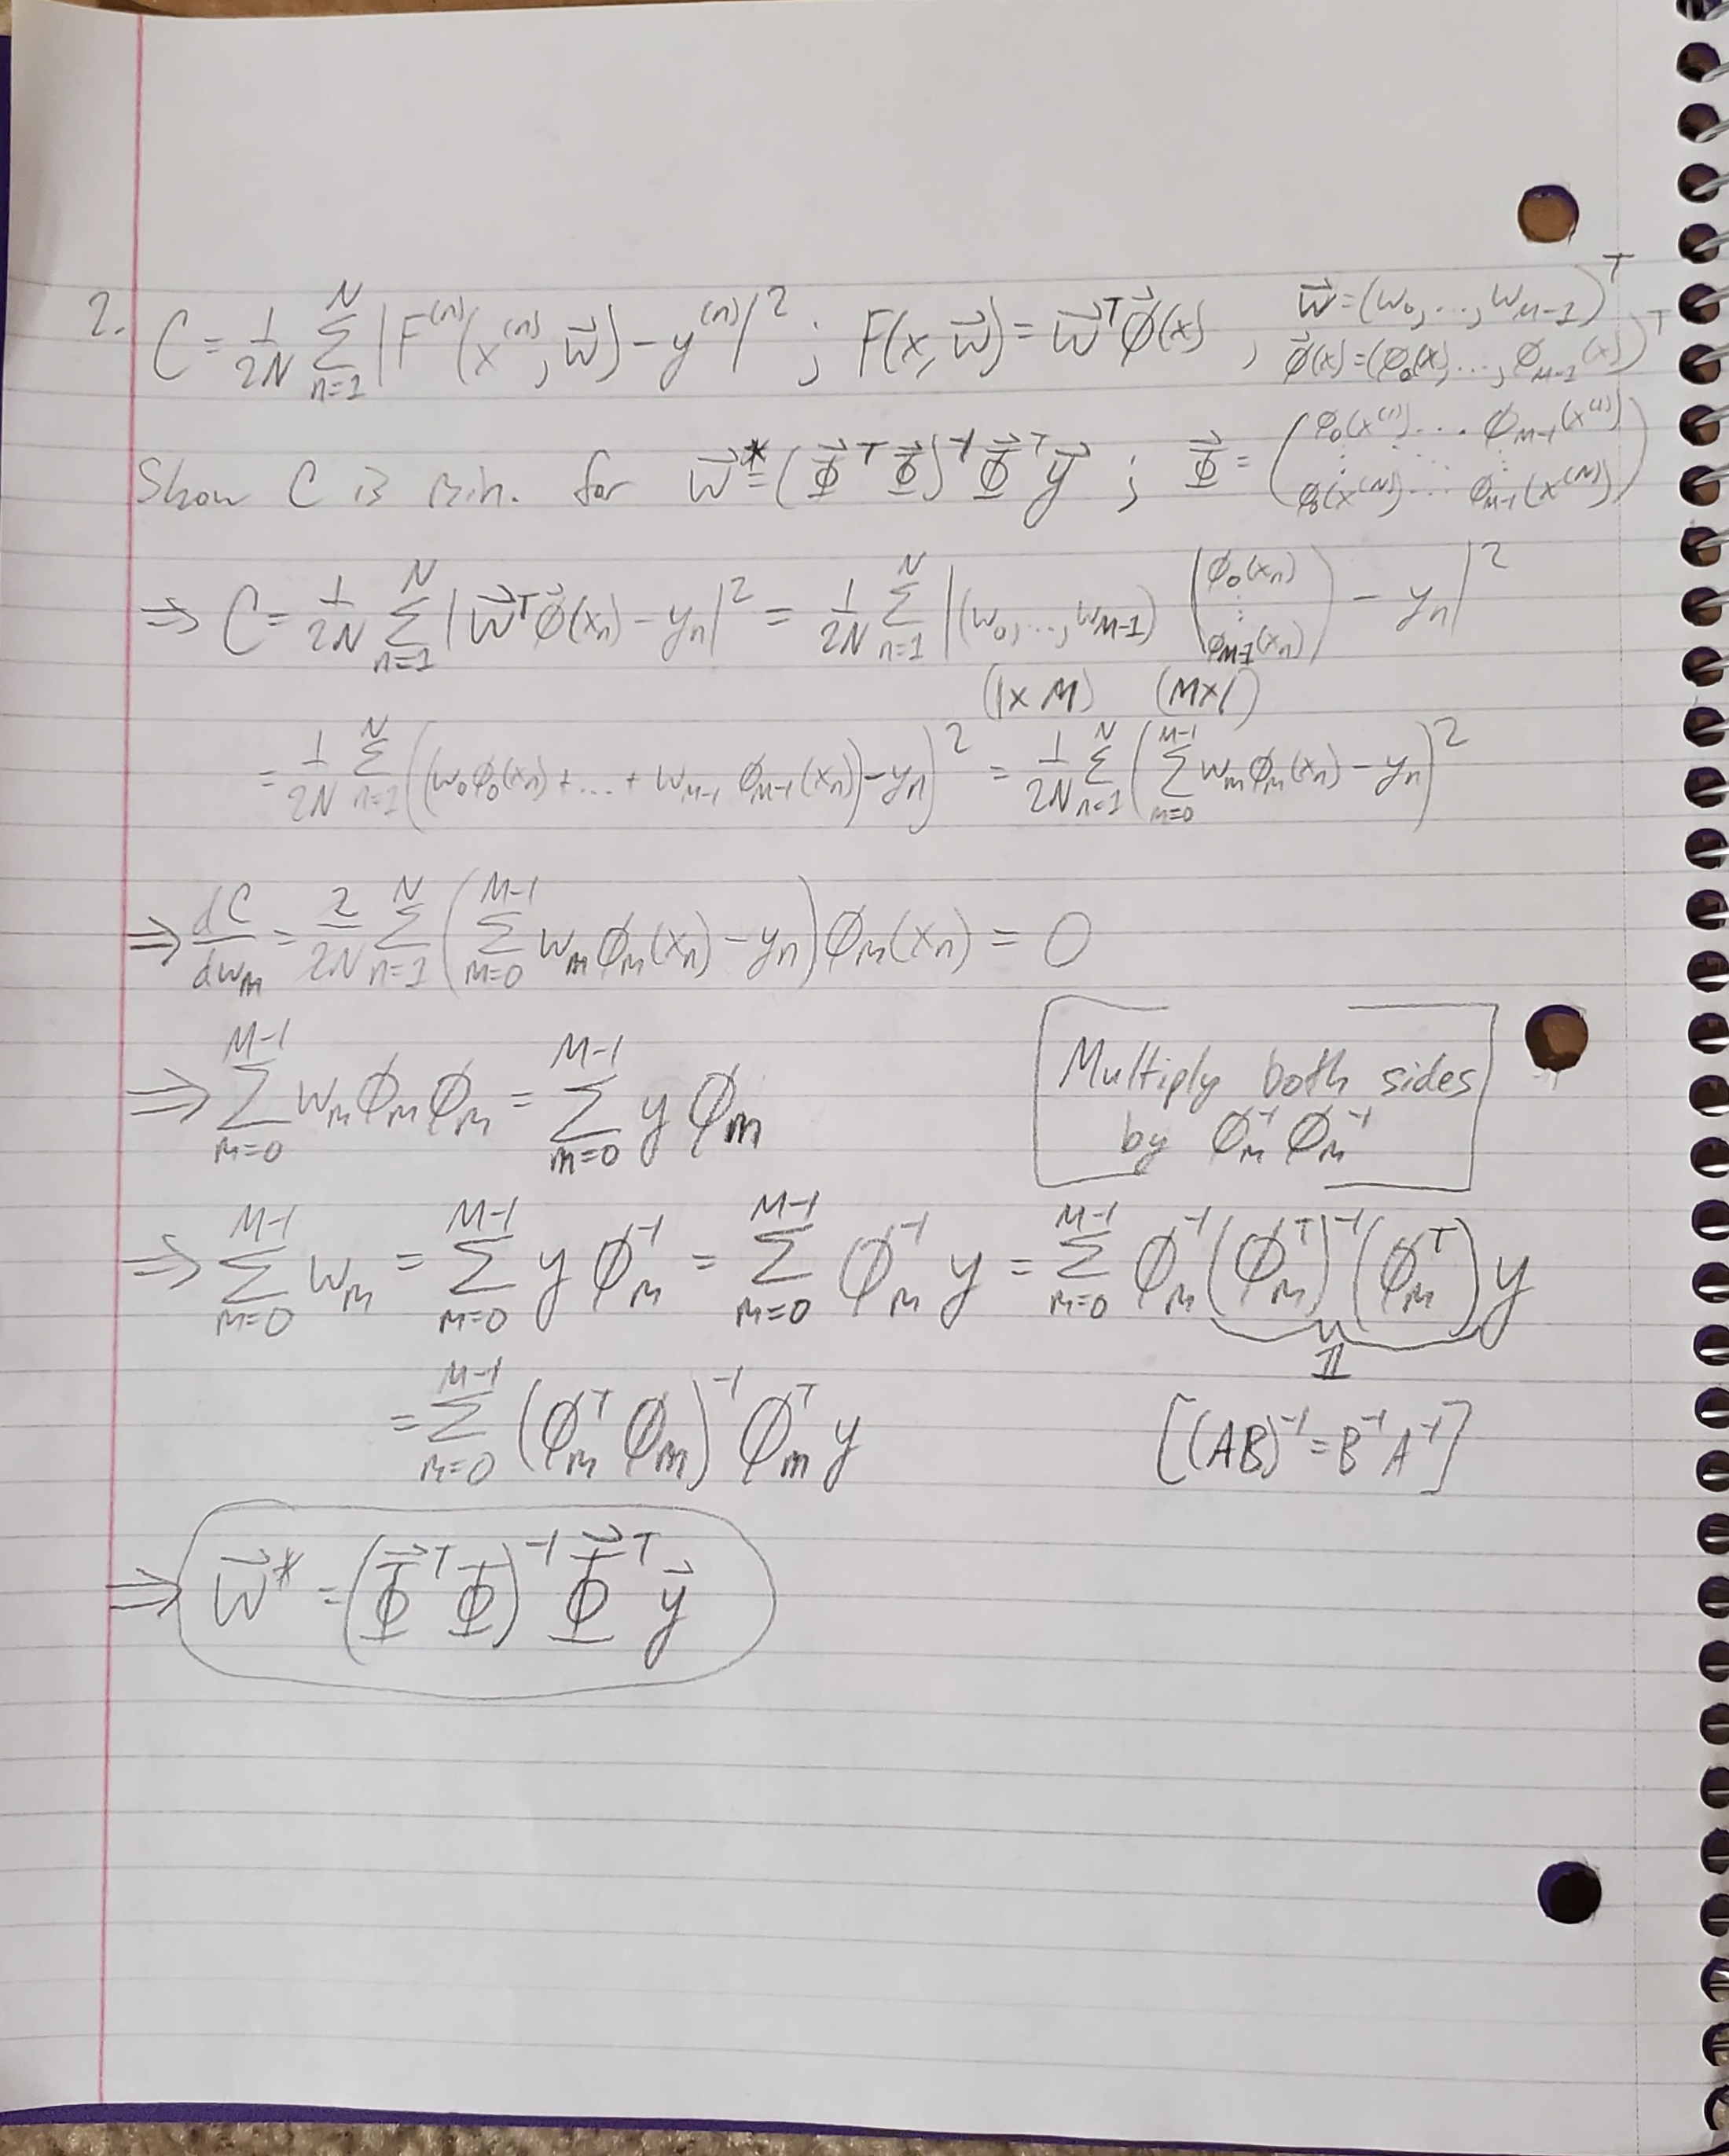 2. C = 1/2N Σ_{n=1}^{N} |F^{(n)}(x^{(n)}, w⃗) − y^{(n)}|² ; F(x, w⃗) = w⃗^T φ⃗(x) , w⃗ = (w_0, ..., w_{M-1})^T
φ⃗(x) = (φ_0(x), ..., φ_{M-1}(x))^T
Show C is min. for w⃗* = (Φ⃗^T Φ⃗)^{-1} Φ⃗^T y⃗ ; Φ⃗ = ( φ_0(x^{(1)}) ... φ_{M-1}(x^{(1)})
⋮ ⋱ ⋮
φ_0(x^{(N)}) ... φ_{M-1}(x^{(N)}) )
⇒ C = 1/2N Σ_{n=1}^{N} |w⃗^T φ⃗(x_n) − y_n|² = 1/2N Σ_{n=1}^{N} |(w_0, ..., w_{M-1}) (φ_0(x_n) ⋮ φ_{M-1}(x_n)) − y_n|²
(1×M) (M×1)
= 1/2N Σ_{n=1}^{N} ((w_0 φ_0(x_n) + ... + w_{M-1} φ_{M-1}(x_n)) − y_n)² = 1/2N Σ_{n=1}^{N} (Σ_{m=0}^{M-1} w_m φ_m(x_n) − y_n)²
⇒ dC/dw_m = 2/2N Σ_{n=1}^{N} (Σ_{m=0}^{M-1} w_m φ_m(x_n) − y_n) φ_m(x_n) = 0
⇒ Σ_{m=0}^{M-1} w_m φ_m φ_m = Σ_{m=0}^{M-1} y φ_m
Multiply both sides
by φ_m^{-1} φ_m^{-1}
⇒ Σ_{m=0}^{M-1} w_m = Σ_{m=0}^{M-1} y φ_m^{-1} = Σ_{m=0}^{M-1} φ_m^{-1} y = Σ_{m=0}^{M-1} φ_m^{-1} (φ_m^T)^{-1} (φ_m^T) y
𝟙
= Σ_{m=0}^{M-1} (φ_m^T φ_m)^{-1} φ_m^T y [(AB)^{-1} = B^{-1} A^{-1}]
⇒ w⃗* = (Φ⃗^T Φ)^{-1} Φ⃗^T y⃗